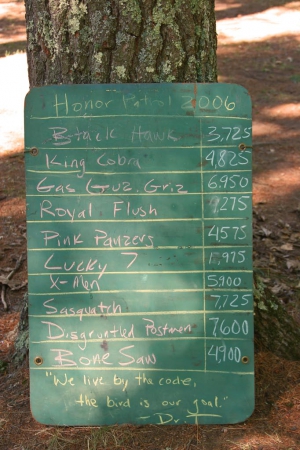 Honor Patrol 2006
Black Hawk 3,725
King Cobra 4,825
Gas Guz. Griz 6,950
Royal Flush 9,275
Pink Panzers 4,575
Lucky 7
X-Men 5,900
Sasquatch 7,725
Disgruntled Postmen 7,600
Bone Saw 4,900
"We live by the code,
the bird is our goal."
- Dr. T